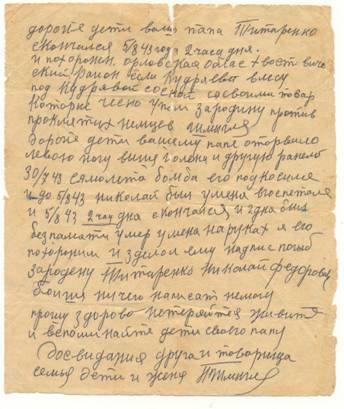 дорогие дети ваш папа Титаренко
скончался 5/8 43 года 2 часа дня.
и похоронен. орловская област
ский район село кудрявец влесу
под кудрявой сосной сосвоими товар
которые чесно упали зародину против
проклятих немцев
Дорогие дети вашему папе оторвало
левою ногу више голена и другую ранело
30/7 43 ссамолета бомба его подкосила
и до 5/8 43 николай был уменя
и 5/8 43 2 часу дна скончался и 2 дна был
безпамяти умер умена наруках я его
похоронил и зделол ему надпис погиб
зародену Титаренко Николай Федоров
больше ничего написат немогу
прошу здорово нетеряйтся живите
и вспоминайте дети своего папу
Досвидания друга и товарища
семья дети и жена